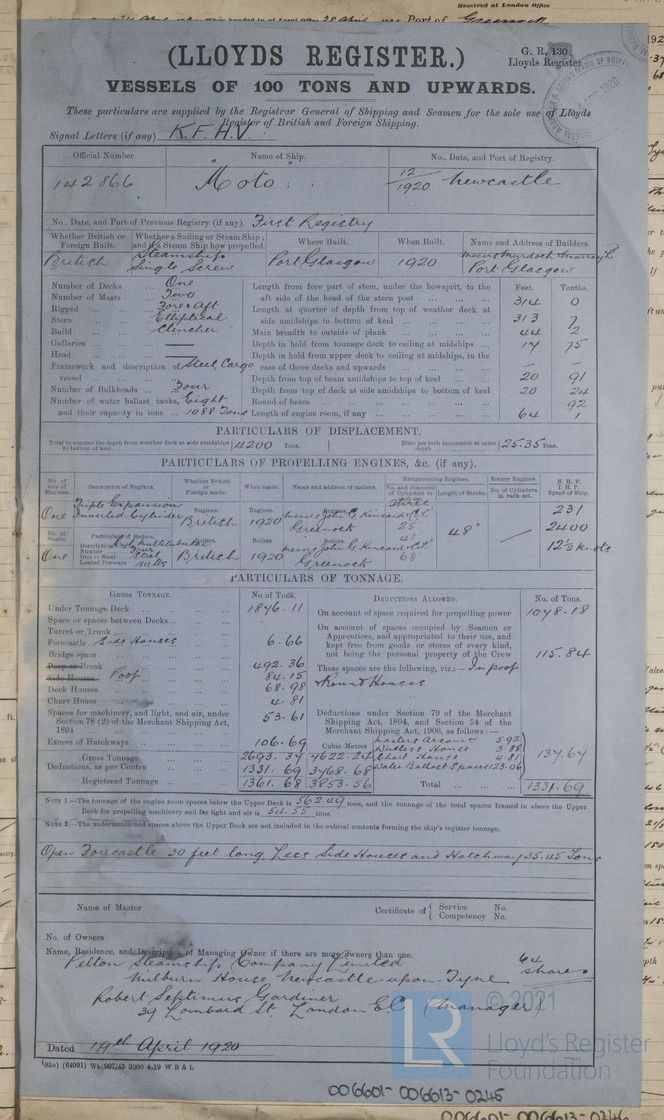 Received at London Office
Port of Greenock
(LLOYDS REGISTER.)
G. R. 130
Lloyds Register
VESSELS OF 100 TONS AND UPWARDS.
These particulars are supplied by the Registrar General of Shipping and Seamen for the sole use of Lloyds
Register of British and Foreign Shipping.
Signal Letters (if any) K.F.H.V.
Official Number. Name of Ship. No., Date, and Port of Registry.
142866 "Moto" 12/1920 Newcastle
No., Date, and Port of Previous Registry (if any). First Registry
Whether British or Foreign Built. Whether a Sailing or Steam Ship; and if a Steam Ship how propelled. Where Built. When Built. Name and Address of Builders.
British Steamship Single Screw Port Glasgow 1920 Messrs Murdoch Murray Port Glasgow
Number of Decks One
Number of Masts Two
Rigged Fore & Aft
Stern Elliptical
Build Clencher
Galleries —
Head —
Framework and description of vessel Steel Cargo
Number of Bulkheads Four
Number of water ballast tanks, Eight
and their capacity in tons 1088 Tons
Feet. Tenths.
Length from fore part of stem, under the bowsprit, to the aft side of the head of the stern post 314 0
Length at quarter of depth from top of weather deck at side amidships to bottom of keel 313 7
Main breadth to outside of plank 44 2
Depth in hold from tonnage deck to ceiling at midships 17 75
Depth in hold from upper deck to ceiling at midships, in the case of three decks and upwards — —
Depth from top of beam amidships to top of keel 20 91
Depth from top of deck at side amidships to bottom of keel 20 24
Round of beam 92
Length of engine room, if any 64 1
PARTICULARS OF DISPLACEMENT.
Total to quarter the depth from weather deck at side amidships to bottom of keel 4200 Tons. Ditto per inch immersion at same depth 25.35 Tons.
PARTICULARS OF PROPELLING ENGINES, &c. (if any).
No. of sets of Engines. Description of Engines. Whether British or Foreign made. When made. Name and address of makers. Reciprocating Engines. No. and Diameter of Cylinders in each set. Length of Stroke. Rotary Engines. No. of Cylinders in each set. N. H. P. I. H. P. Speed of Ship.
One Triple Expansion Inverted Cylinder British 1920 Messrs John G. Kincaid & Co Ld Greenock Three 25" 41" 68" 48" — 231 2400
No. of Shafts. Particulars of Boilers.
Description Multitubular
Number Four
Iron or Steel Steel
Loaded Pressure 180 lbs
One British 1920 Messrs John G. Kincaid & Co Ld Greenock knots
PARTICULARS OF TONNAGE.
GROSS TONNAGE. No of Tons. DEDUCTIONS ALLOWED. No. of Tons.
Under Tonnage Deck 1876.11
Space or spaces between Decks
Turret or Trunk
Forecastle Side Houses 6.66
Bridge space 492.36
Poop or Break
Side Houses Poop 84.15
Deck Houses 68.98
Chart House 4.81
Spaces for machinery, and light, and air, under Section 78 (2) of the Merchant Shipping Act, 1894 53.61
Excess of Hatchways 106.69
Cubic Metres
Gross Tonnage 2693.37 7622.24
Deductions, as per Contra 1331.69 3768.68
Registered Tonnage 1361.68 3853.56
On account of space required for propelling power 1078.18
On account of spaces occupied by Seamen or Apprentices, and appropriated to their use, and kept free from goods or stores of every kind, not being the personal property of the Crew 115.84
These spaces are the following, viz.:— In poop
& Round Houses
Deductions under Section 79 of the Merchant Shipping Act, 1894, and Section 54 of the Merchant Shipping Act, 1906, as follows:—
Masters Accom 5.92
Windlass House 3.88
Chart House 4.81
Water Ballast Spaces 123.06
137.67
Total 1331.69
NOTE 1.—The tonnage of the engine room spaces below the Upper Deck is 562.49 tons, and the tonnage of the total spaces framed in above the Upper
Deck for propelling machinery and for light and air is tons.
NOTE 2.—The undermentioned spaces above the Upper Deck are not included in the cubical contents forming the ship's register tonnage.
Open Forecastle 30 feet long, Less Side Houses and Hatchway 35.45 Tons
Name of Master Certificate of { Service No. Competency No.
No. of Owners
Name, Residence, and Description of Managing Owner if there are more owners than one.
Pelton Steamship Company Limited 64 shares
Milburn House Newcastle upon Tyne
Robert Septimus Gardiner
39 Lombard St. London E.C. (Manager)
Dated 19th April 1920
(830) (64091) Wt. 997/43 2000 4-19 W B & L
LR © 2021
Lloyd's Register
Foundation
006601-006613-0245
006601-006613-0246